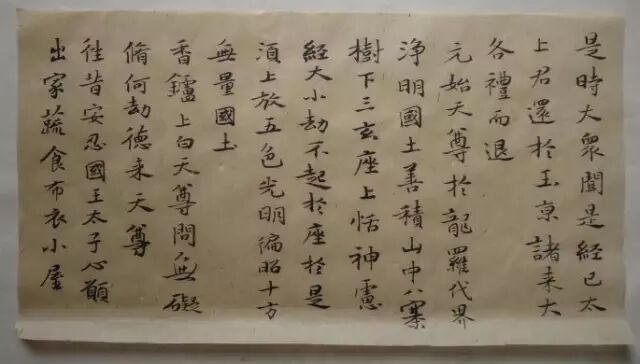 是時大衆聞是經已太
上君還於玉京諸来大
各禮而退
元始天尊於龍羅代界
浄明國土善積山中八騫
樹下三玄座上恬神慮
經大小劫不起於座於是
湏上放五色光明徧昭十方
無量國土
香鑪上白天尊問無礙
脩何劫德来天尊
徃昔安忍國王太子心願
出家蔬食布衣小屋